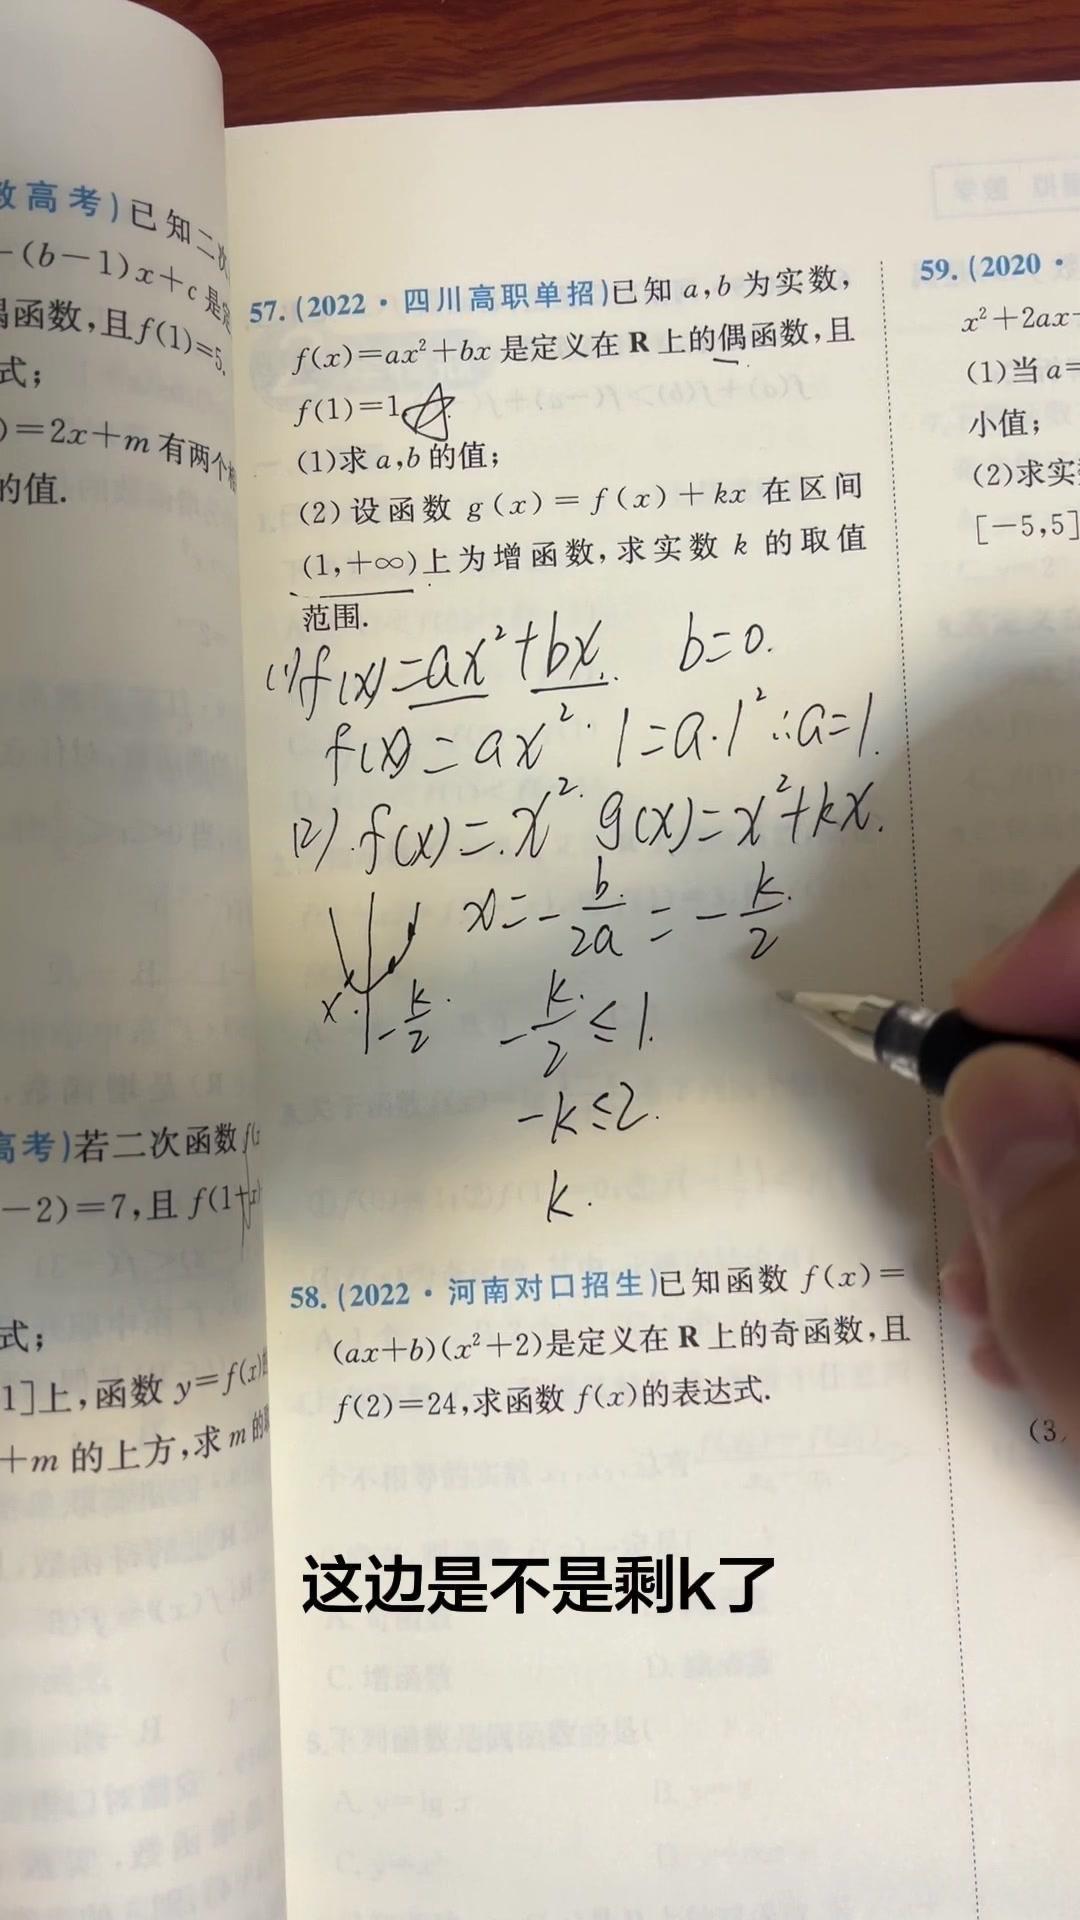 数高考)已知二次
-(b-1)x+c是定
偶函数,且f(1)=5.
式;
)=2x+m有两个相
的值.
高考)若二次函数f(x
-2)=7,且f(1+x)
式;
1]上,函数y=f(x)的
+m的上方,求m的取
57.(2022·四川高职单招)已知a,b为实数,
f(x)=ax²+bx是定义在R上的偶函数,且
f(1)=1.
(1)求a,b的值;
(2)设函数g(x)=f(x)+kx在区间
(1,+∞)上为增函数,求实数k的取值
范围.
(1)f(x)=ax²+bx. b=0.
f(x)=ax². 1=a·1² ∴a=1.
(2).f(x)=x². g(x)=x²+kx.
x=-b/2a=-k/2
x -k/2 -k/2≤1.
-k≤2.
k.
58.(2022·河南对口招生)已知函数f(x)=
(ax+b)(x²+2)是定义在R上的奇函数,且
f(2)=24,求函数f(x)的表达式.
59.(2020·
x²+2ax-
(1)当a=
小值;
(2)求实
[-5,5]
(3,
这边是不是剩k了